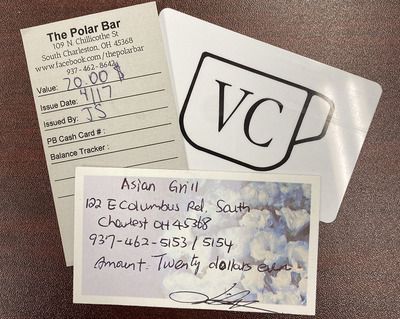 The Polar Bar
109 N. Chillicothe St
South Charleston, OH 45368
www.facebook.com/thepolarbar
937-462-8642
Value: 20.00 $
Issue Date: 4/17
Issued By: JS
PB Cash Card # :
Balance Tracker :
VC
Asian Grill
122 E Columbus Rd, South
Charlest OH 45368
937-462-5153 / 5154
Amount: Twenty dollars even